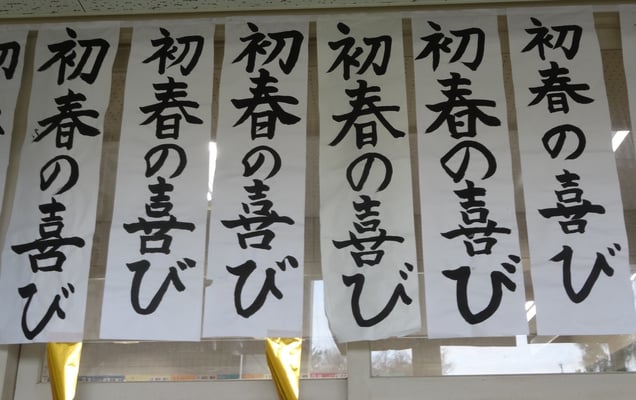 初春の喜び
初春の喜び
初春の喜び
初春の喜び
初春の喜び
初春の喜び
初